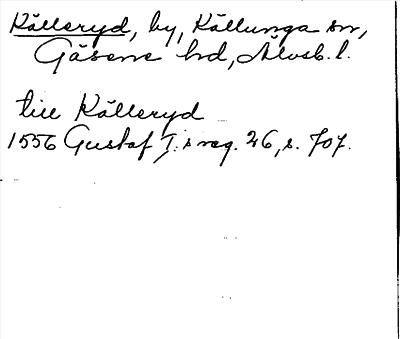 Källeryd, by, Källunga sn,
Gäsene hd, Älvsb. l.
till Källeryd
1556 Gustaf I:s reg. 26, s. 707.